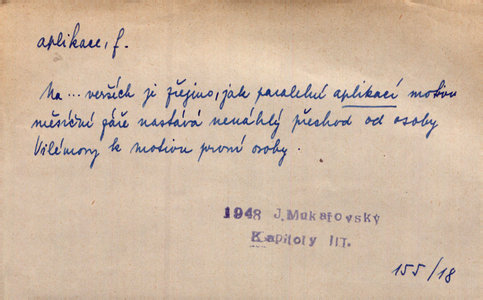 aplikace, f.
Na ... verších je zřejmo, jak paralelní aplikací motivu
měsíční záře nastává nenáhlý přechod od osoby
Vilémovy k motivu první osoby.
1948 J. Mukařovský
Kapitoly III.
155/18